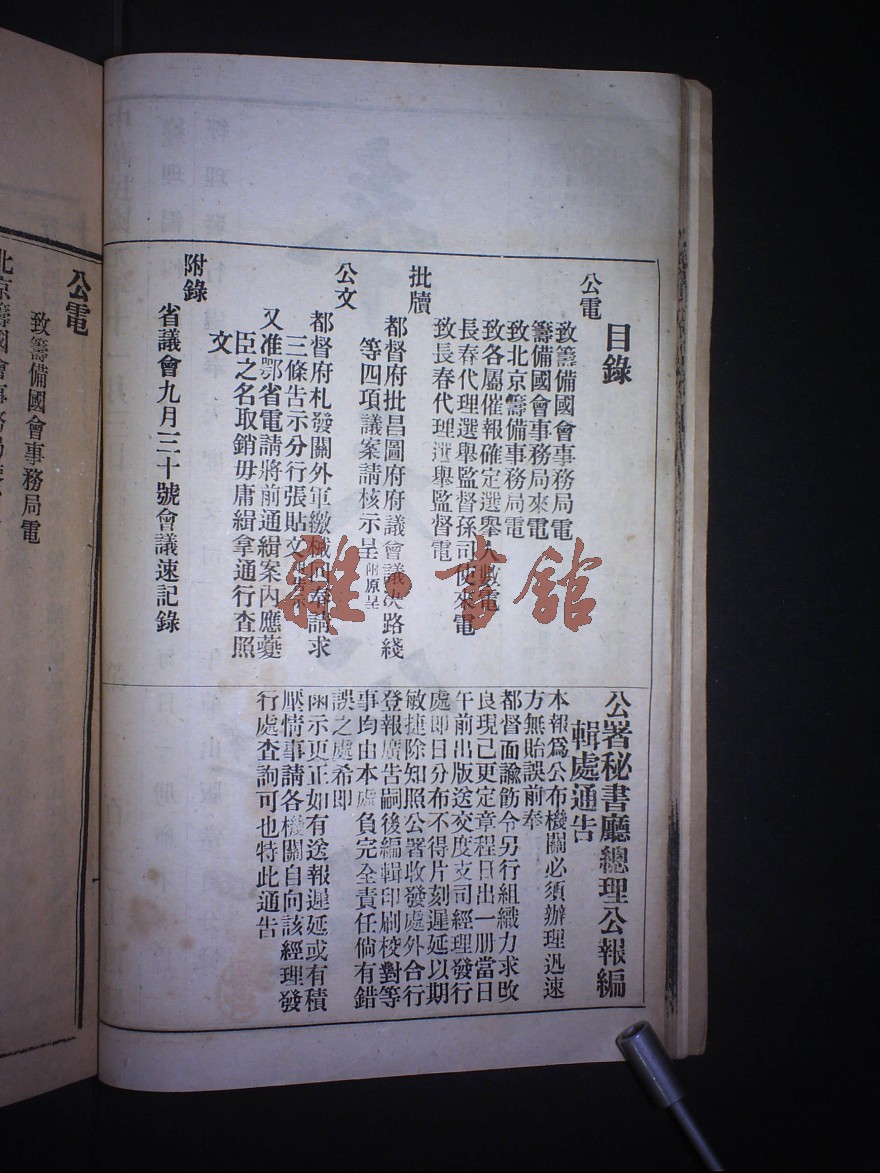 目錄
公電
致籌備國會事務局電
籌備國會事務局來電
致北京籌備事務局電
致各屬催報確定選舉人數電
長春代理選舉監督孫司使來電
致長春代理選舉監督電
批牘
都督府批昌圖府府議會議決路綫
等四項議案請核示呈附原呈
公文
都督府札發關外軍繳械回奉請求
三條告示分行張貼文
又准鄂省電請將前通緝案內應夔
臣之名取銷毋庸緝拿通行查照
文
附錄
省議會九月三十號會議速記錄
公署秘書廳總理公報編
輯處通告
本報爲公布機關必須辦理迅速
方無貽誤前奉
都督面諭飭令另行組織力求改
良現已更定章程日出一册當日
午前出版送交度支司經理發行
處即日分布不得片刻遲延以期
敏捷除知照公署收發處外合行
登報廣告嗣後編輯印刷校對等
事均由本處負完全責任倘有錯
誤之處希即
函示更正如有送報遲延或有積
壓情事請各機關自向該經理發
行處查詢可也特此通告
雜·書館
公電
致籌備國會事務局電
北京籌國會事務局